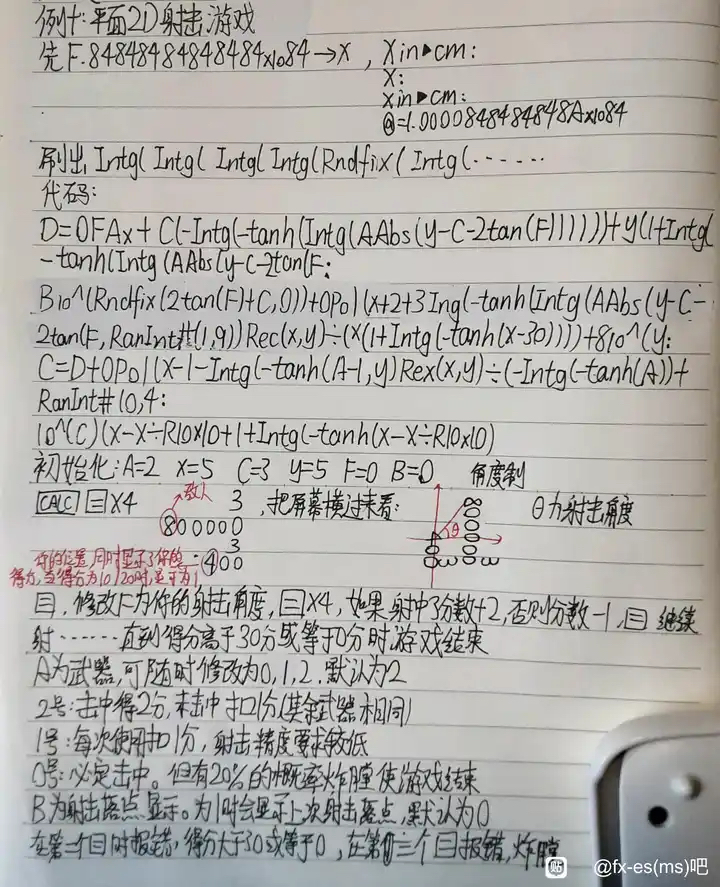 例十:平面2D射击游戏
先F.84848484848484x1084→x , X in▶cm:
X:
X in▶cm:
@=1.0000848484848Ax1084
刷出 Intg( Intg( Intg( Intg(Rndfix( Intg(······
代码:
D=0FAx+C(-Intg(-tanh(Intg(AAbs(y-C-2tan(F))))))+y(1+Intg(
-tanh(Intg(AAbs(y-C-2tan(F:
B10^(Rndfix(2tan(F)+C,0))+0Pol(x+2+3Ing(-tanh(Intg(AAbs(y-C-
2tan(F,RanInt#(1,9))Rec(x,y)÷(x(1+Intg(-tanh(x-30))))+810^(y:
C=D+0Pol(x-1-Intg(-tanh(A-1,y)Rex(x,y)÷(-Intg(-tanh(A))+
RanInt#(0,4:
10^(C)(x-x÷R10x10+1+Intg(-tanh(x-x÷R10x10)
初始化:A=2 x=5 C=3 y=5 F=0 B=0 角度制
CALC 日X4 敌人 3 ,把屏幕横过来看: θ θ为射击角度
800000
3
400
你的位置,同时显示了你的
得分,当得分为10/20时,显示为1
日,修改F为你的射击角度,日X4,如果射中3分数+2,否则分数-1,日 继续
射······直到得分高于30分或等于0分时,游戏结束
A为武器,可随时修改为0,1,2.默认为2
2号:击中得2分,未击中扣1分(其余武器相同)
1号:每次使用扣1分,射击精度要求较低
0号:必定击中。但有20%的概率炸膛使游戏结束
B为射击落点显示。为1时会显示上次射击落点,默认为0
在第二个日时报错,得分大于30或等于0,在第三个日报错,炸膛
贴 @fx-es(ms)吧